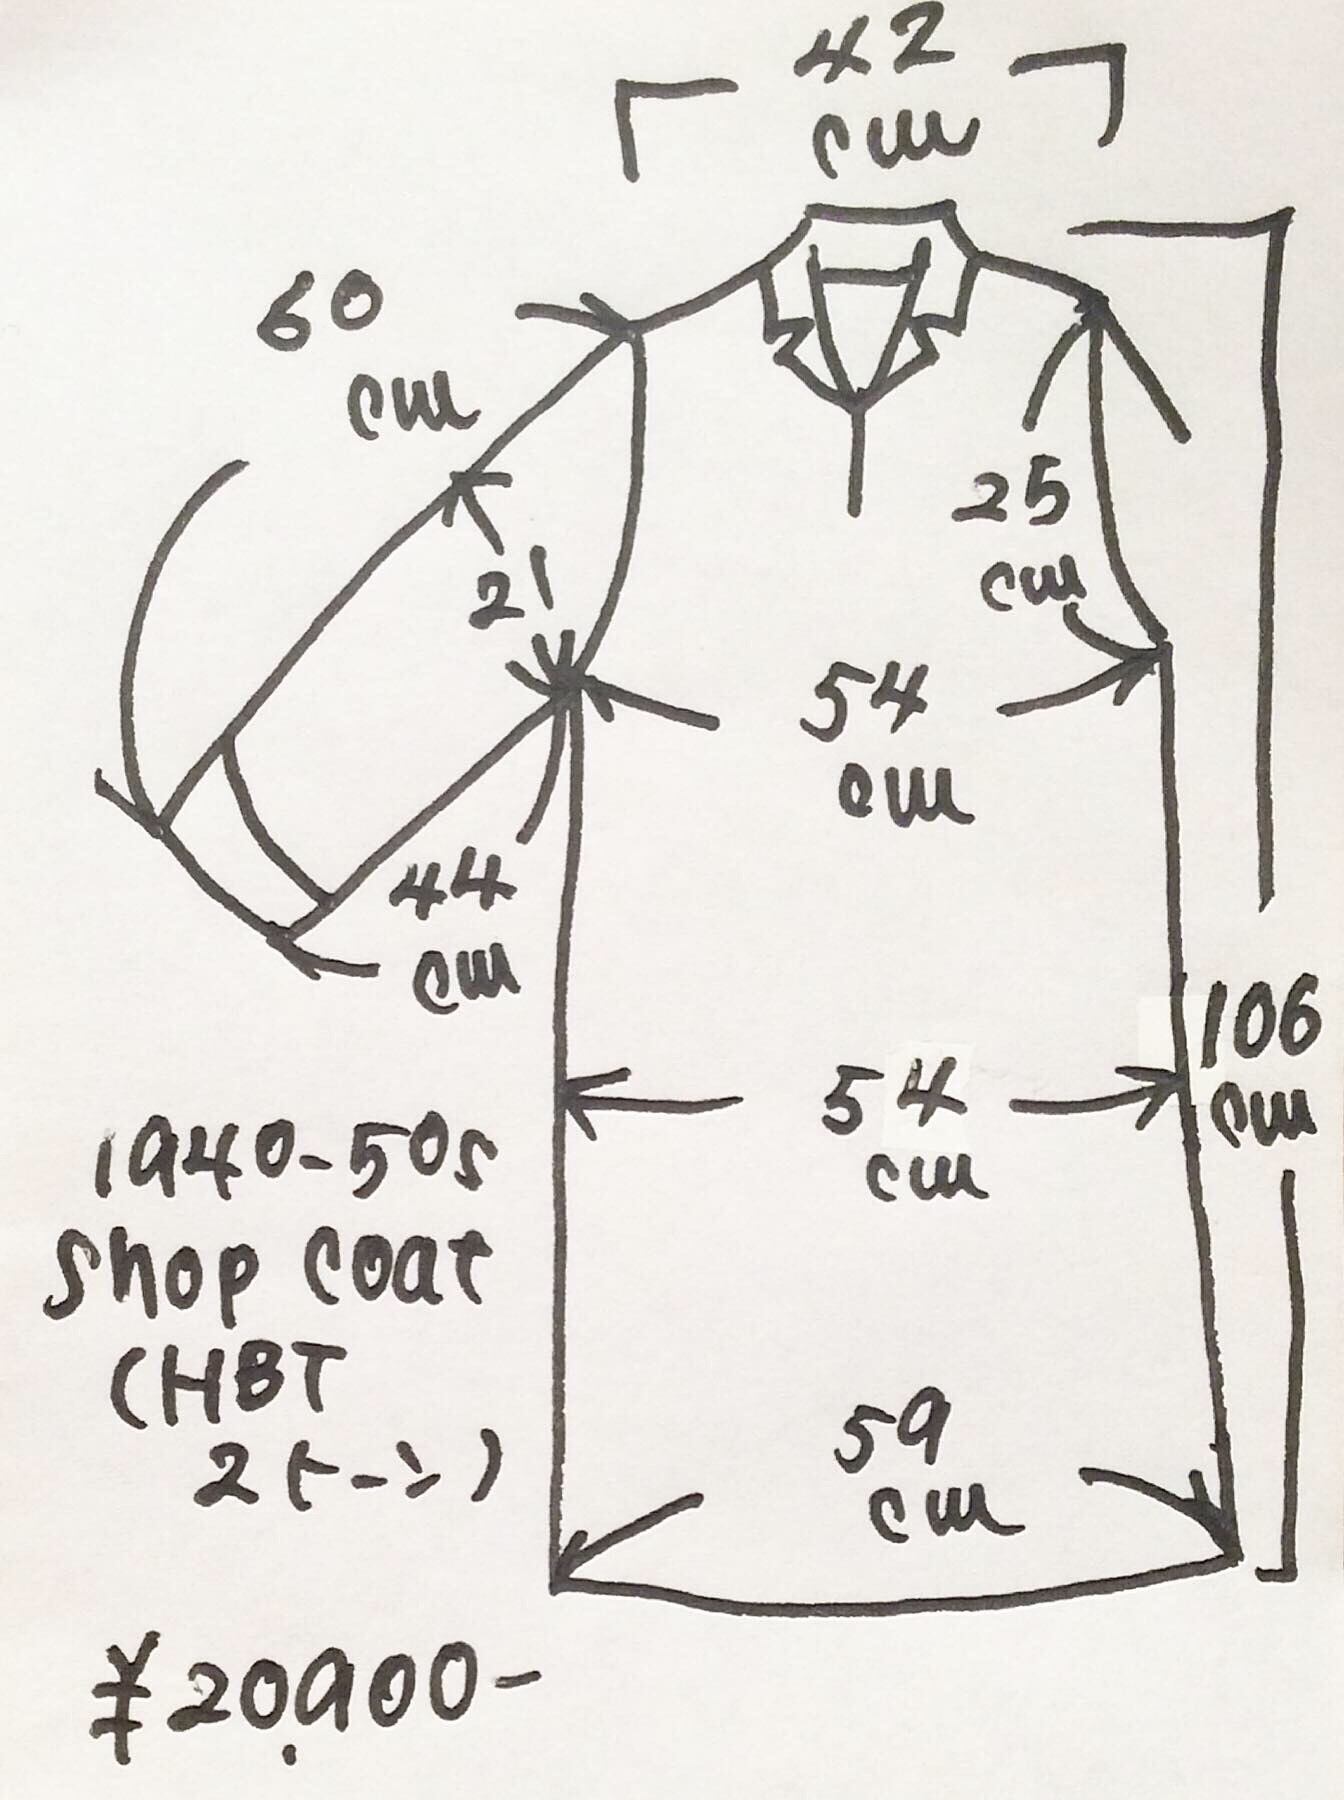 42
cm
60
cm
25
cm
21
54
cm
44
cm
106
cm
54
cm
1940-50s
Shop coat
(HBT
2トーン)
59
cm
¥20,900-